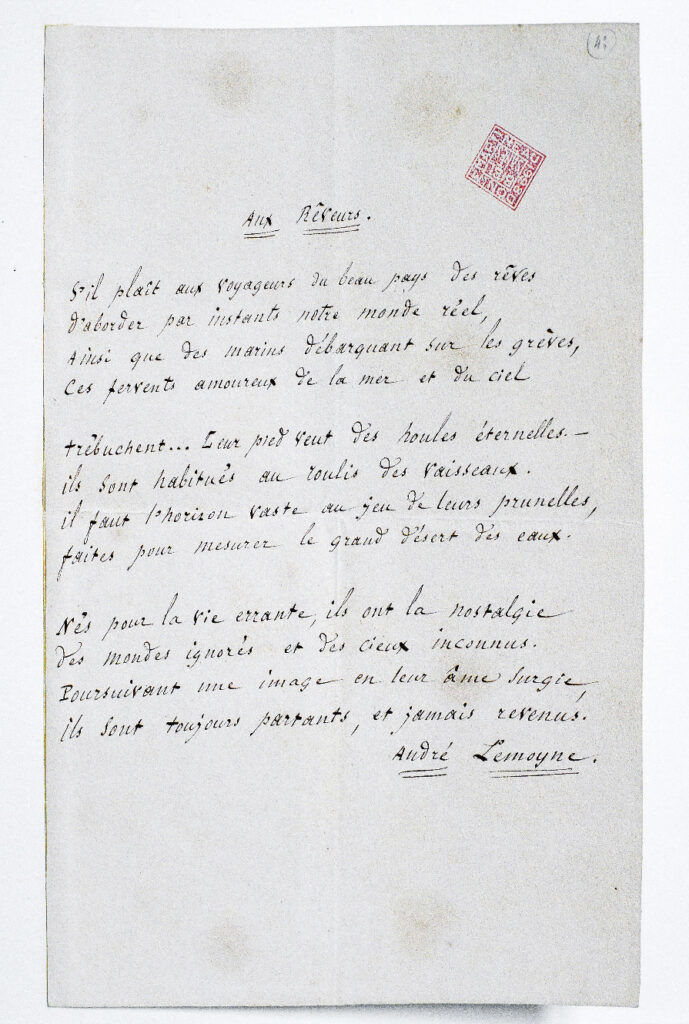 Aux Rêveurs.
S'il plaît aux voyageurs du beau pays des rêves
D'aborder par instants notre monde réel,
Ainsi que des marins débarquant sur les grèves,
Ces fervents amoureux de la mer et du ciel
trébuchent... Leur pied veut des houles éternelles. —
ils sont habitués au roulis des vaisseaux.
il faut l'horizon vaste au jeu de leurs prunelles,
faites pour mesurer le grand désert des eaux.
Nés pour la vie errante, ils ont la nostalgie
des mondes ignorés et des cieux inconnus.
Poursuivant une image en leur âme surgie,
ils sont toujours partants, et jamais revenus.
André Lemoyne.